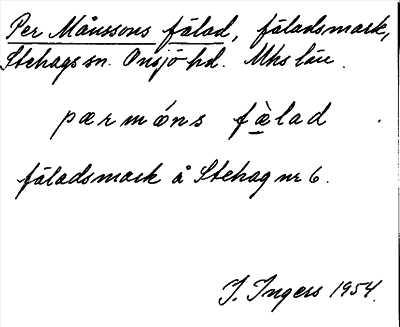 Per Månssons fälad, fäladsmark,
Stehags sn. Onsjö hd. Mhs län.
pær mǿns fæ̀lad
fäladsmark å Stehag nr 6.
I. Ingers 1954.